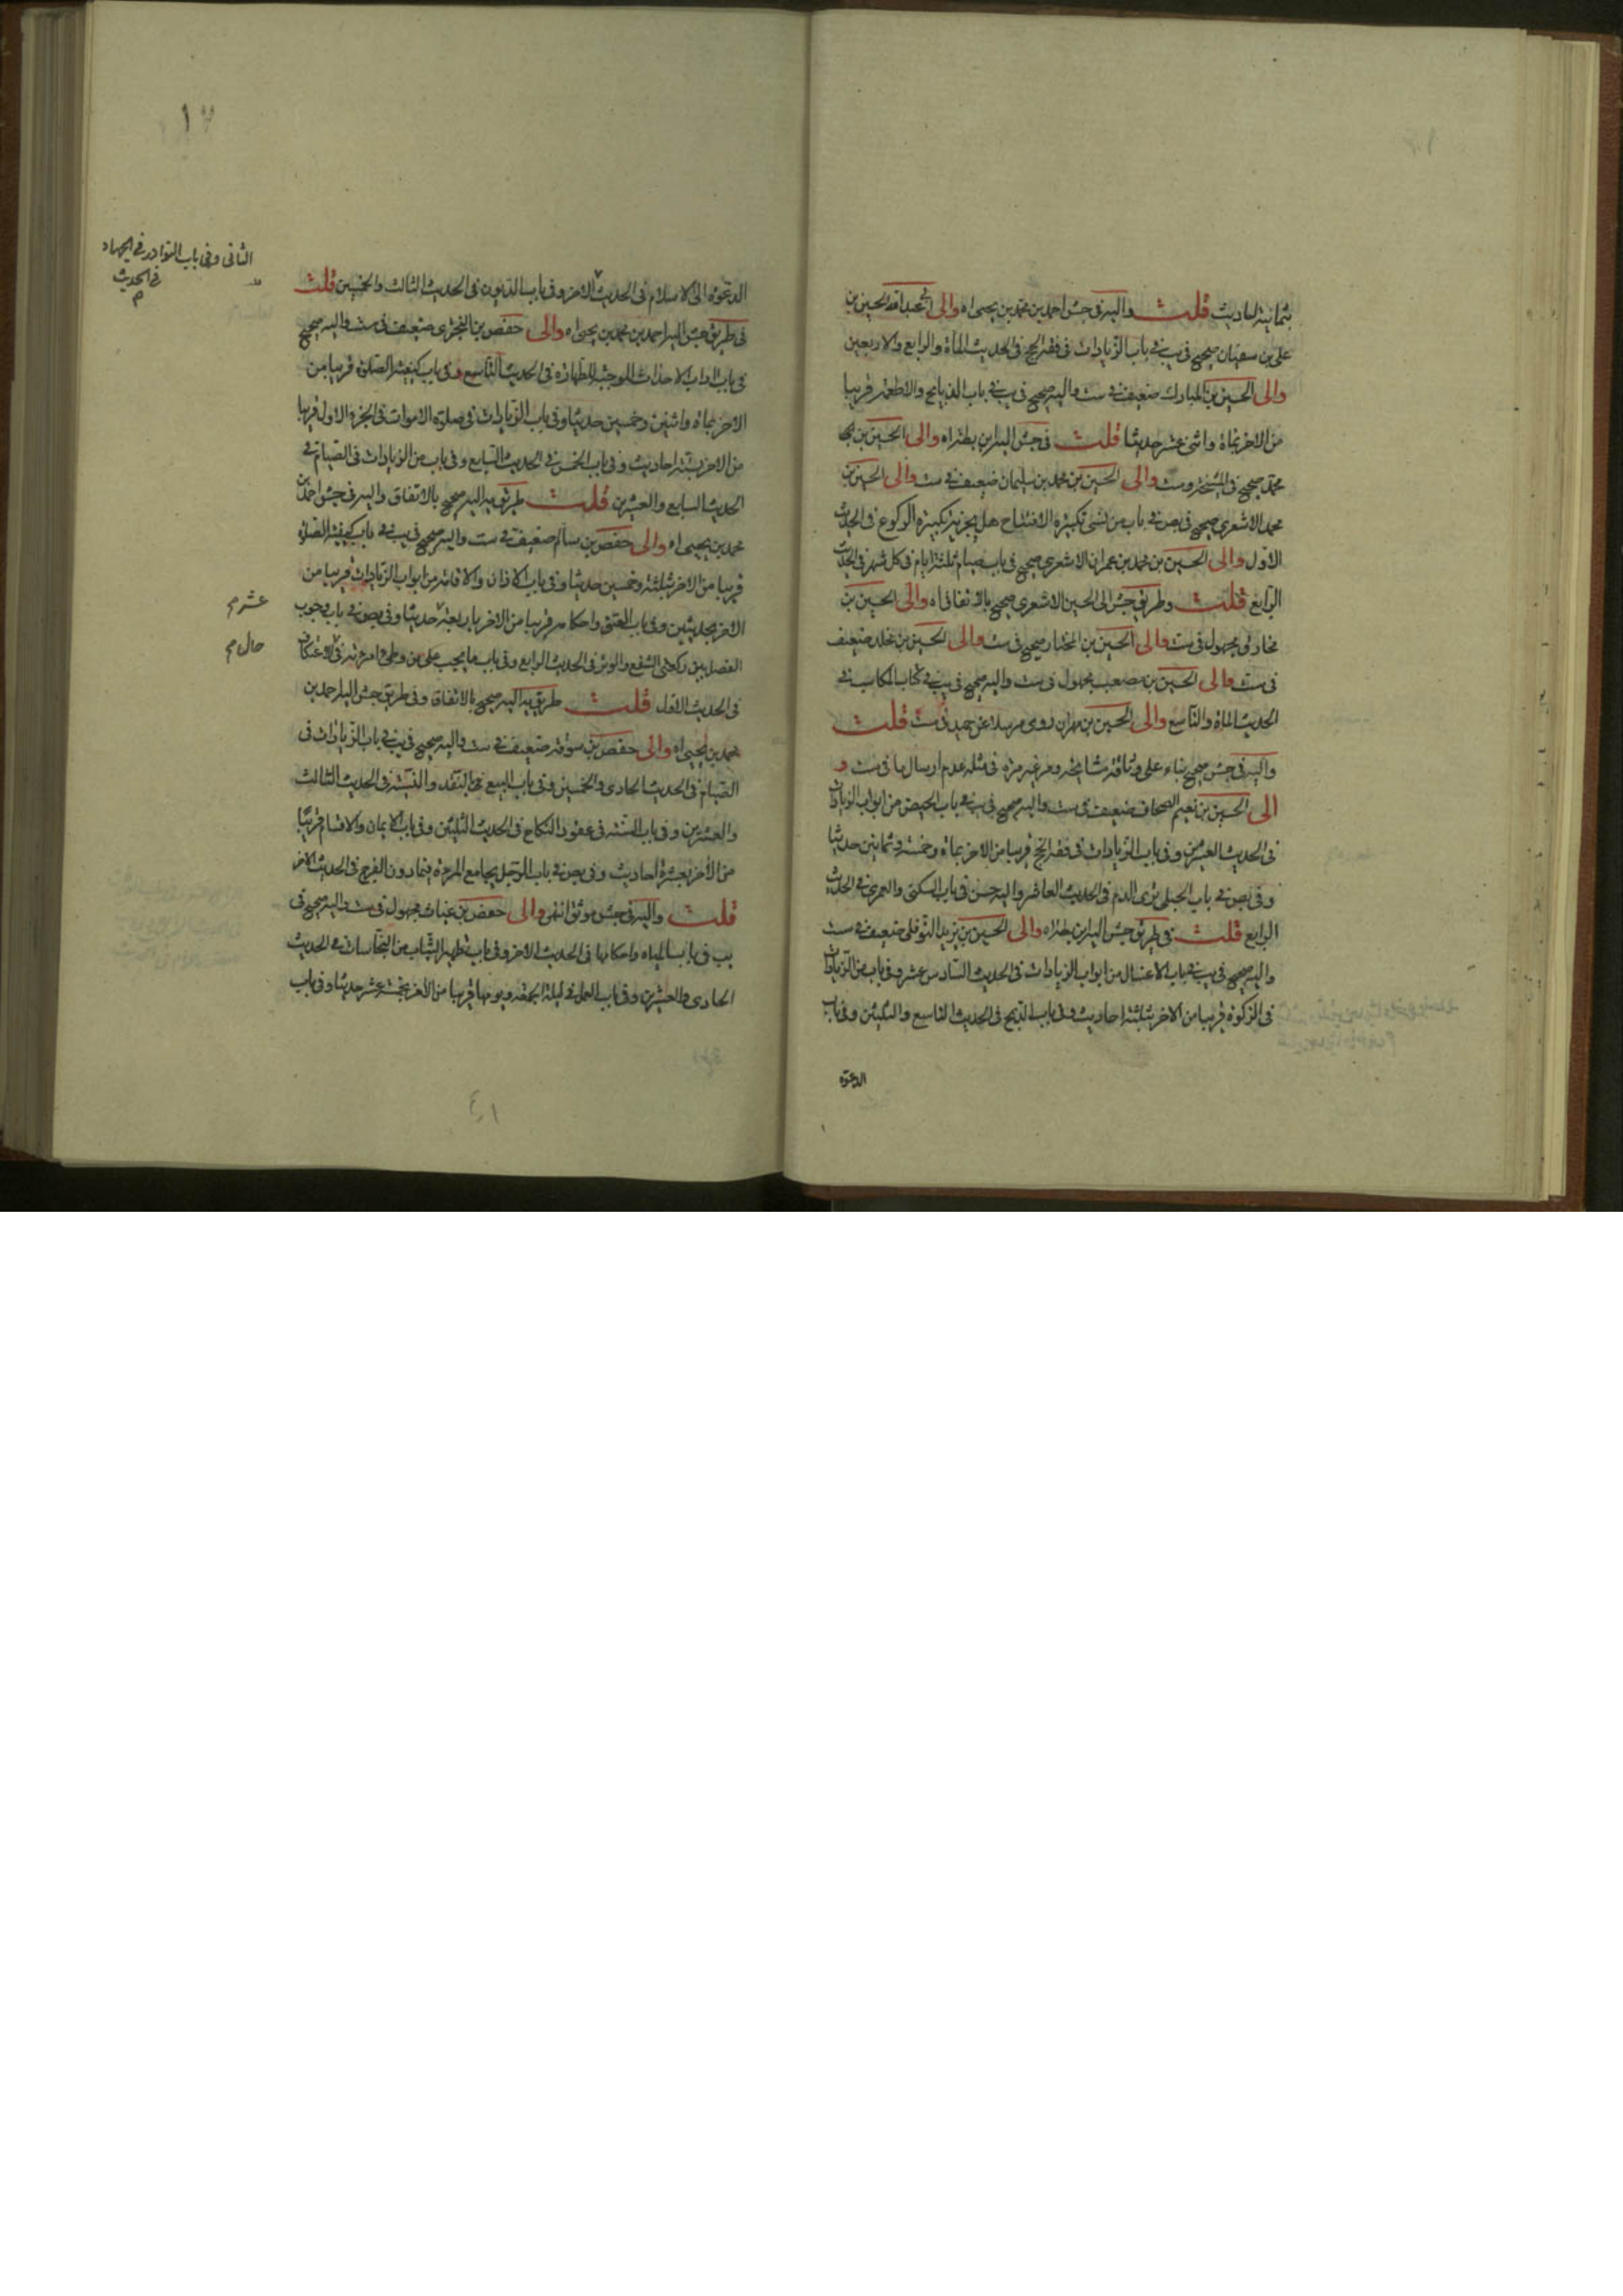 بثمانية احاديث قلت واليه فى جش احمد بن محمد بن يحيى اه والى ابى عبد الله الحسين بن
على بن سفيان صحيح فى يب فى باب الزيادات فى فقه الحج فى الحديث المأة والرابع والاربعين
والى الحسين بن المبارك ضعيف فى ست واليه صحيح فى يب فى باب الذبايح والاطعمه قريبا
من الاخر بمأة واثنى عشر حديثا قلت فى جش اليه ابن بطه اه والى الحسين بن
محمد صحيح فى المشيخة وست والى الحسين بن محمد بن سليمان ضعيف فى ست والى الحسين بن
محمد الاشعرى صحيح فى بص فى باب من نسى تكبيرة الافتتاح هل يجزيه تكبيرة الركوع فى الحديث
الاول والى الحسين بن محمد بن عمران الاشعرى صحيح فى باب صيام ثلثة ايام فى كل شهر فى الحديث
الرابع قلت وطريق جش الى الحسين الاشعرى صحيح بالاتفاق اه والى الحسين بن
مخارق مجهول فى ست والى الحسين بن المختار صحيح فى ست والى الحسين بن مخلد ضعيف
فى ست والى الحسين بن مصعب مجهول فى ست واليه صحيح فى يب فى كتاب المكاسب فى
الحديث المأة والتاسع والى الحسين بن مهران روى مرسلا عن حميد فى ست قلت
واليه فى جش صحيح بناء على وثاقة مشايخه ومر غير مرة فى مثله عدم ارسال ما فى ست و
الى الحسين بن نعيم الصحاف ضعيف فى ست واليه صحيح فى يب فى باب الحيض من ابواب الزيادات
فى الحديث العشرين وفى باب الزيادات فى فقه الحج قريبا من الاخر بمأة وخمسة وثمانين حديثا
وفى بص فى باب الحبلى ترى الدم فى الحديث العاشر واليه حسن فى باب السكنى والعمرى فى الحديث
الرابع قلت فى طريق جش اليه ابن بطه اه والى الحسين بن يزيد النوفلى ضعيف فى ست
واليه صحيح فى يب فى باب الاغسال من ابواب الزيادات فى الحديث السادس عشر وفى باب من الزيادات
فى الزكوة قريبا من الاخر بثلثة احاديث وفى باب الذبح فى الحديث التاسع والثلثين وفى باب
الدعوة
١٧
الثانى وفى باب النوادر فى الجهاد
فى الحديث
م
الدعوة الى الاسلام فى الحديث الاخر وفى باب الديون فى الحديث الثالث والخمسين قلت
فى طريق جش اليه احمد بن محمد بن يحيى اه والى حفص بن البخترى ضعيف فى ست واليه صحيح
فى باب اداب الاحداث الموجبة للطهارة فى الحديث التاسع وفى باب كيفية الصلوة قريبا من
الاخر بمأة واثنين وخمسين حديثا وفى باب الزيادات فى صلوة الاموات فى الجزء الاول قريبا
من الاخر بستة احاديث وفى باب الخمس فى الحديث السابع وفى باب من الزيادات فى الصيام فى
الحديث السابع والعشرين قلت طريق يه اليه صحيح بالاتفاق واليه فى جش احمد بن
محمد بن يحيى اه والى حفص بن سالم ضعيف فى ست واليه صحيح فى يب فى باب كيفية الصلوة
قريبا من الاخر بثلثة وخمسين حديثا وفى باب الاذان والاقامة من ابواب الزيادات قريبا من
الاخر بحديثين وفى باب العتق واحكامه قريبا من الاخر باربعة حديثا وفى بص فى باب وجوب
عشر م
الفصل بين ركعتى الشفع والوتر فى الحديث الرابع وفى باب ما يجب على من وطى امرءته فى الاعتكاف
حال م
فى الحديث الاول قلت طريق يه اليه صحيح بالاتفاق وفى طريق جش اليه احمد بن
محمد بن يحيى اه والى حفص بن سوقة ضعيف فى ست واليه صحيح فى يب فى باب الزيادات فى
الصيام فى الحديث الحادى والخمسين وفى باب البيع بالنقد والنسيئة فى الحديث الثالث
والعشرين وفى باب السنة فى عقود النكاح فى الحديث الثلثين وفى باب الايمان والاقسام قريبا
من الاخر بعشرة احاديث وفى بص فى باب الرجل يجامع المرءة فيما دون الفرج فى الحديث الاخر
قلت واليه فى جش موثق انتهى والى حفص بن غياث مجهول فى ست واليه صحيح فى
يب فى باب المياه واحكامها فى الحديث الاخر وفى باب تطهير الثياب من النجاسات فى الحديث
الحادى والعشرين وفى باب العمل فى ليلة الجمعة ويومها قريبا من الاخر بخمسة عشر حديثا وفى باب